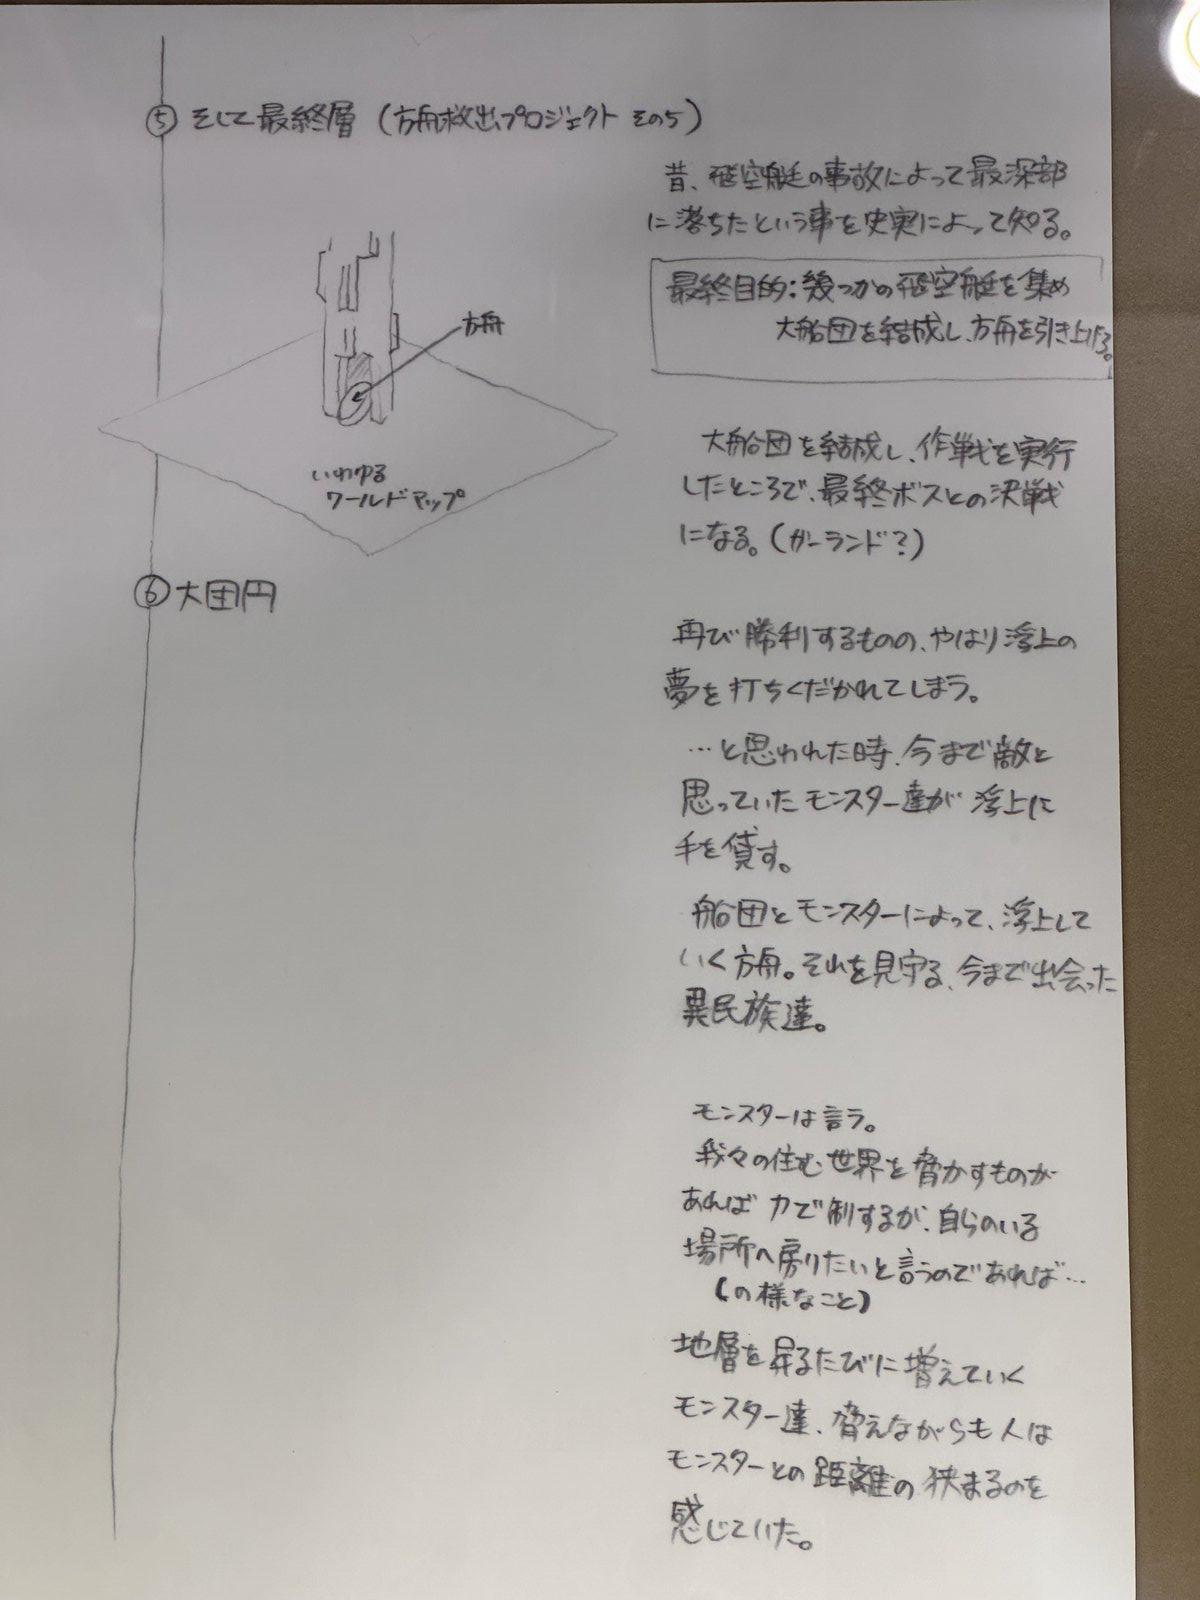 ⑤ そして最終層（方舟救出プロジェクト その5）
昔、飛空艇の事故によって最深部
に落ちたという事を史実によって知る。
最終目的：幾つかの飛空艇を集め
大船団を結成し、方舟を引き上げる。
方舟
いわゆる
ワールドマップ
大船団を結成し、作戦を実行
したところで、最終ボスとの決戦
になる。（ガーランド？）
⑥ 大団円
再び勝利するものの、やはり浮上の
夢を打ちくだかれてしまう。
…と思われた時、今まで敵と
思っていたモンスター達が浮上に
手を貸す。
船団とモンスターによって、浮上して
いく方舟。それを見守る、今まで出会った
異民族達。
モンスターは言う。
我々の住む世界を脅かすものが
あれば力で制するが、自らのいる
場所へ戻りたいと言うのであれば…
（の様なこと）
地層を昇るたびに増えていく
モンスター達、脅えながらも人は
モンスターとの距離の狭まるのを
感じていた。